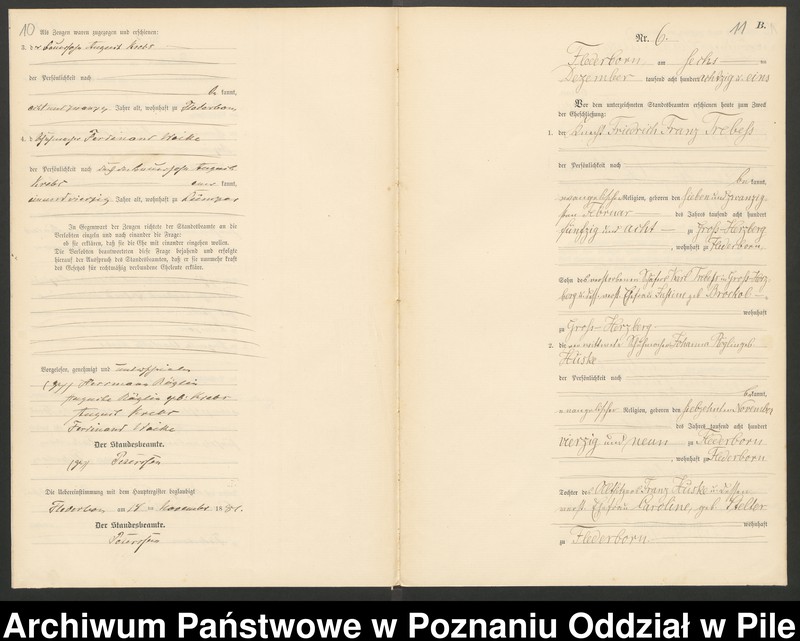 10
Als Zeugen waren zugezogen und erschienen:
3. der Bauersohn August Krebs
der Persönlichkeit nach
be kannt,
acht und zwanzig Jahre alt, wohnhaft zu Flederborn
4. der Schuhmacher Ferdinand
der Persönlichkeit nach durch den Bauersohn August
Krebs aner kannt,
einundvierzig Jahre alt, wohnhaft zu
In Gegenwart der Zeugen richtete der Standesbeamte an die
Verlobten einzeln und nach einander die Frage:
ob sie erklären, daß sie die Ehe mit einander eingehen wollen.
Die Verlobten beantworteten diese Frage bejahend und erfolgte
hierauf der Ausspruch des Standesbeamten, daß er sie nunmehr kraft
des Gesetzes für rechtmäßig verbundene Eheleute erkläre.
Vorgelesen, genehmigt und unterschrieben
(gez) Herrmann Röglin
Auguste Röglin geb. Krebs
August Krebs
Ferdinand
Der Standesbeamte.
(gez)
Die Uebereinstimmung mit dem Hauptregister beglaubigt
Flederborn am 14 ten November 1881.
Der Standesbeamte.
11 B.
Nr. 6.
Flederborn am sechs ten
Dezember tausend acht hundert achtzig u. eins
Vor dem unterzeichneten Standesbeamten erschienen heute zum Zweck
der Eheschließung:
1. der Knecht Friedrich Franz Trebess
der Persönlichkeit nach
be kannt,
evangelischer Religion, geboren den sieben und zwanzig
sten Februar des Jahres tausend acht hundert
fünfzig und acht zu Groß-Herzberg
, wohnhaft zu Flederborn
Sohn des verstorbenen Schäfers Karl Trebess in Groß-Herz
berg u. dess. verst. Ehefrau Justine geb. Brockol
wohnhaft
zu Groß-Herzberg
2. die verwittwete Schuhmacher Johanna geb.
Huske
der Persönlichkeit nach
be kannt,
evangelischer Religion, geboren den siebzehnten November
des Jahres tausend acht hundert
vierzig und neun zu Flederborn
, wohnhaft zu Flederborn
Tochter des Altsitzers Franz Huske u. dessen
verst. Ehefrau Caroline, geb. Stelter
wohnhaft
zu Flederborn
Archiwum Państwowe w Poznaniu Oddział w Pile